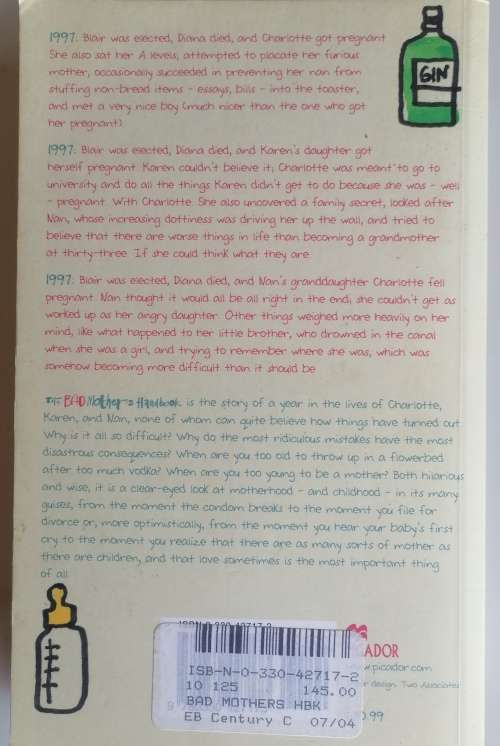 1997: Blair was elected, Diana died, and Charlotte got pregnant.
She also sat her A levels, attempted to placate her furious
mother, occasionally succeeded in preventing her nan from
stuffing non-bread items - essays, bills - into the toaster,
and met a very nice boy (much nicer than the one who got
her pregnant)
GIN
1997: Blair was elected, Diana died, and Karen's daughter got
herself pregnant. Karen couldn't believe it; Charlotte was meant to go to
university and do all the things Karen didn't get to do because she was - well
- pregnant. With Charlotte. She also uncovered a family secret, looked after
Nan, whose increasing dottiness was driving her up the wall, and tried to
believe that there are worse things in life than becoming a grandmother
at thirty-three. If she could think what they are.
1997: Blair was elected, Diana died, and Nan's granddaughter Charlotte fell
pregnant. Nan thought it would all be all right in the end; she couldn't get as
worked up as her angry daughter. Other things weighed more heavily on her
mind, like what happened to her little brother, who drowned in the canal
when she was a girl, and trying to remember where she was, which was
somehow becoming more difficult than it should be
THE BAD Mother's Handbook is the story of a year in the lives of Charlotte,
Karen, and Nan, none of whom can quite believe how things have turned out.
Why is it all so difficult? Why do the most ridiculous mistakes have the most
disastrous consequences? When are you too old to throw up in a flowerbed
after too much vodka? When are you too young to be a mother? Both hilarious
and wise, it is a clear-eyed look at motherhood - and childhood - in its many
guises, from the moment the condom breaks to the moment you file for
divorce or, more optimistically, from the moment you hear your baby's first
cry to the moment you realize that there are as many sorts of mother as
there are children, and that love sometimes is the most important thing
of all
ISBN 0-330-42717-2
ADOR
w.picador.com
r design: Two Associates
0.99
ISB-N-0-330-42717-2
10 125 145.00
BAD MOTHERS HBK
EB Century C 07/04